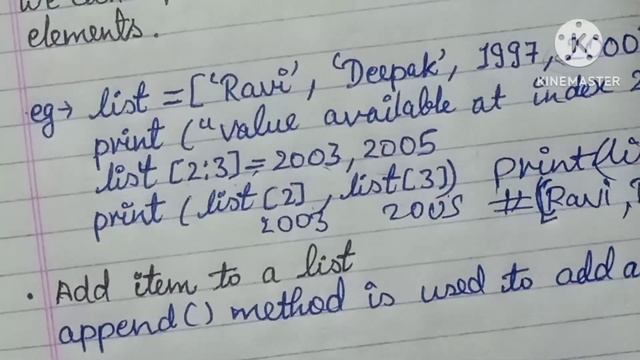 elements.
eg→ list = ['Ravi', 'Deepak', 1997,
print ("value available at index 2
list [2:3] = 2003, 2005
print (list [2], list [3]) print(li
2003 2005 # [Ravi,
• Add item to a list
append() method is used to add a
KINEMASTER